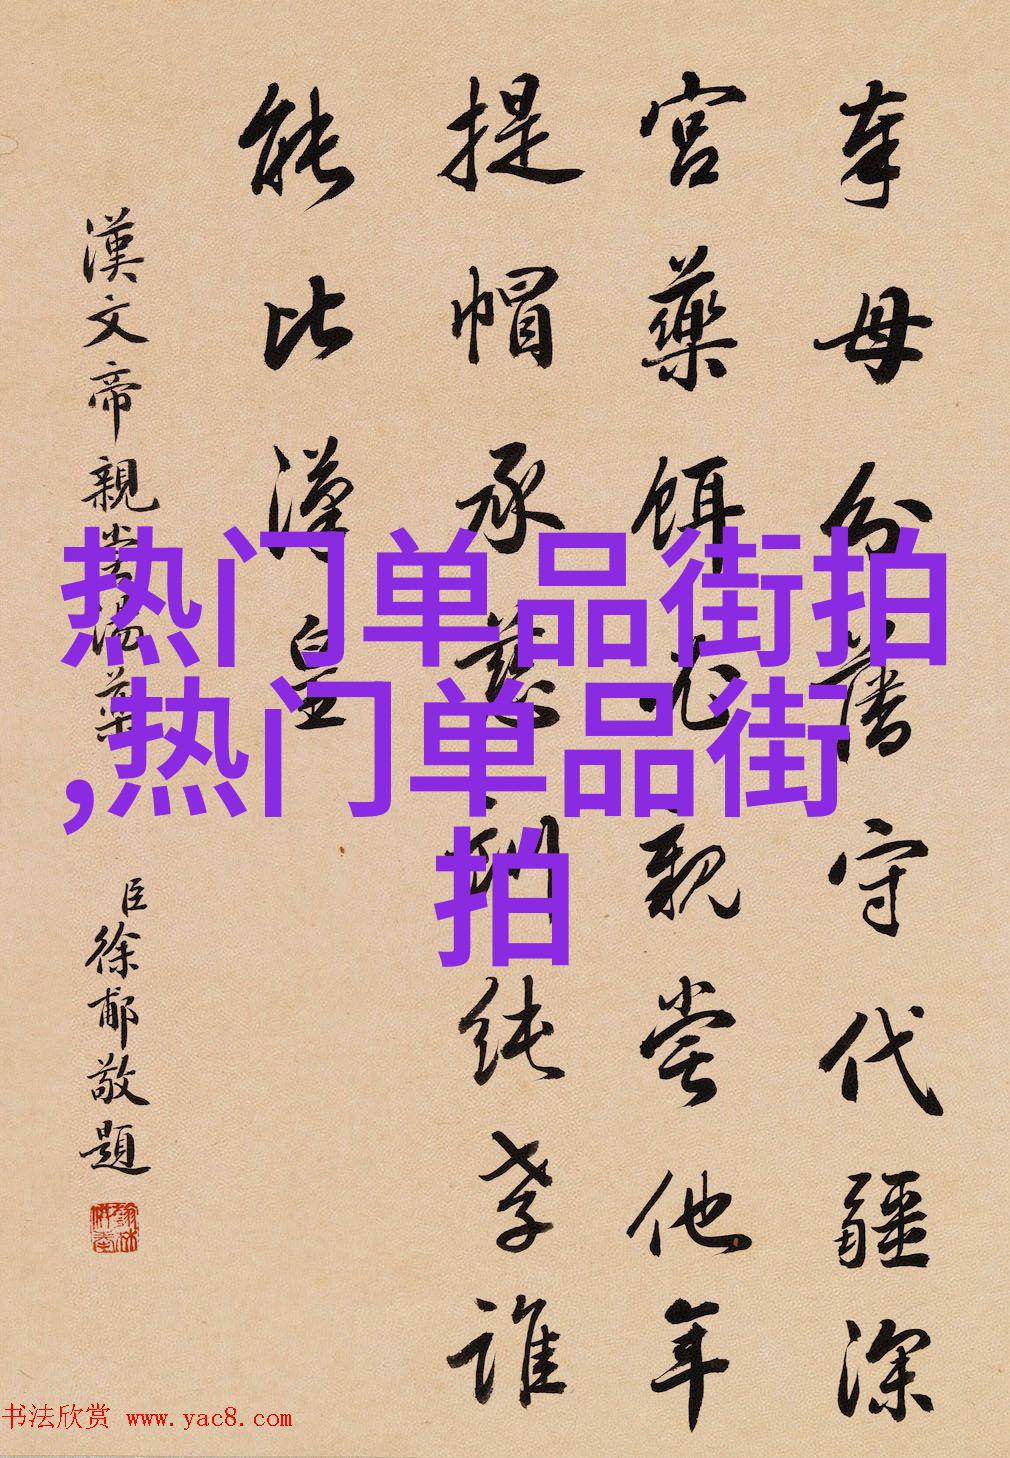 奉母分藩守代疆深
宮藥餌親嘗他年
提帽承慈訓純孝誰
能比漢皇
漢文帝親嘗湯藥
臣徐郙敬題
热门单品街拍
,热门单品街
拍
书法欣赏 www.yac8.com